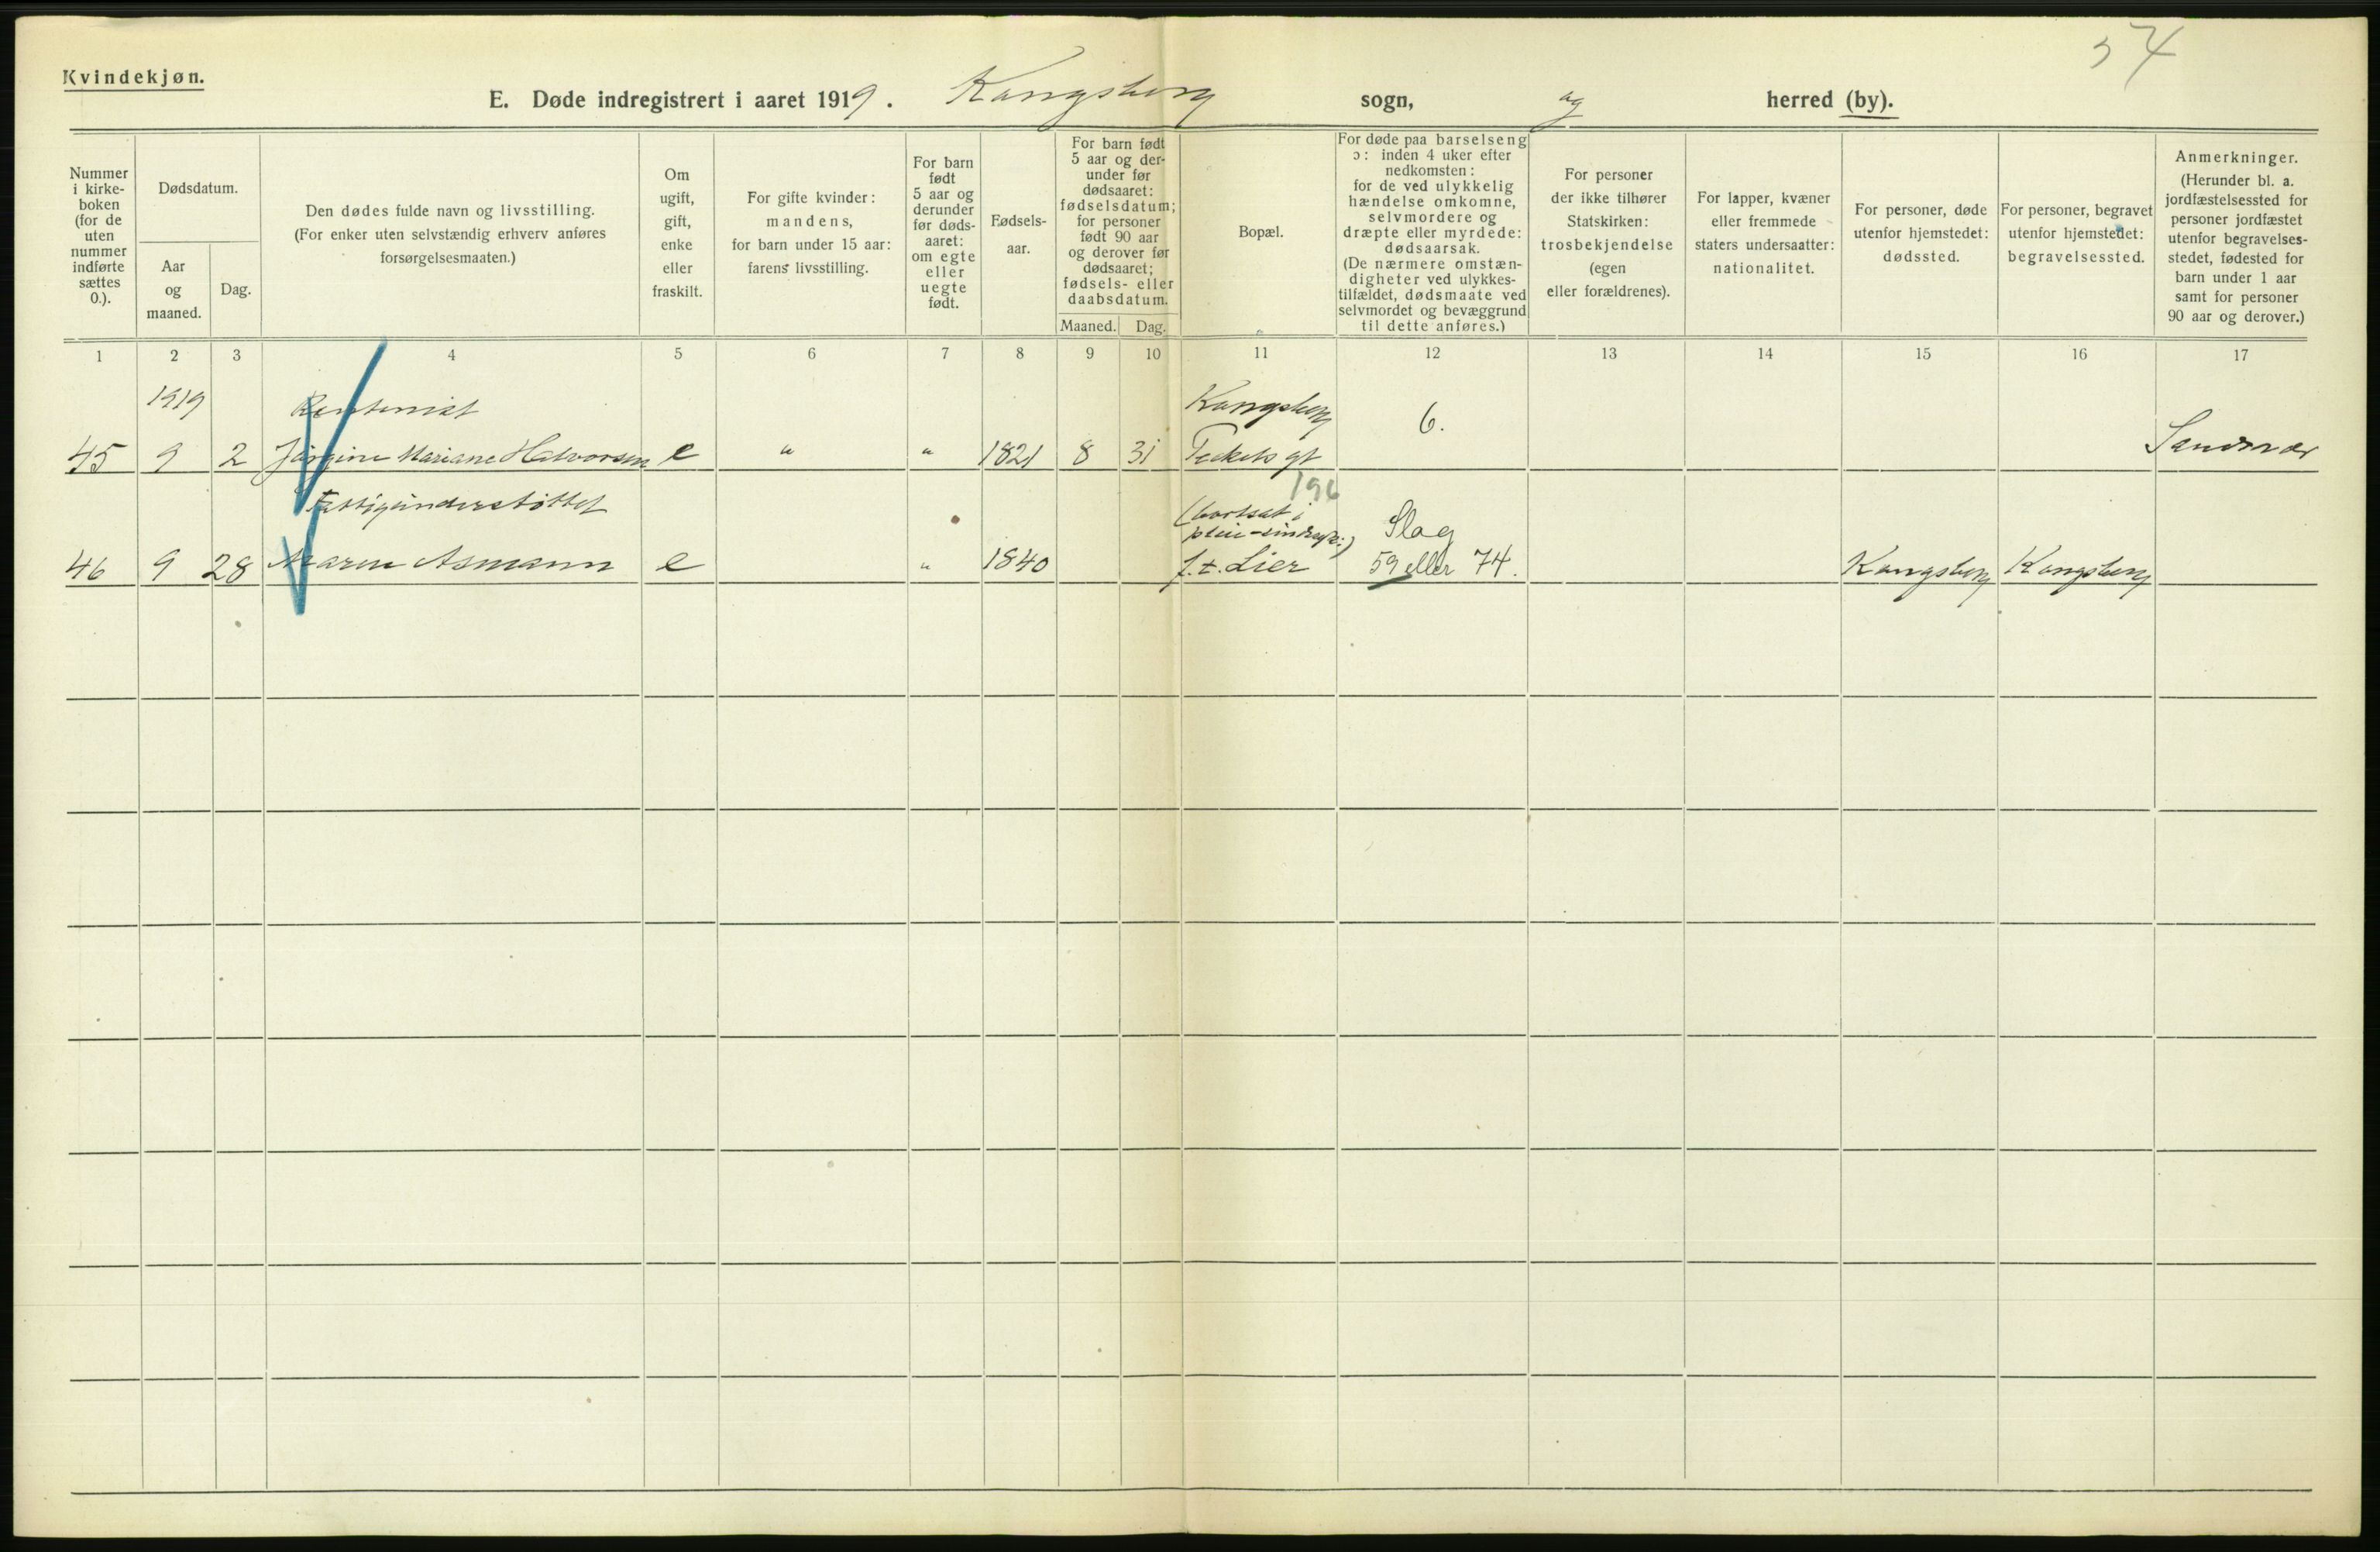 Kvindekjøn.
E. Døde indregistrert i aaret 1919. Kongsberg sogn, og herred (by).
Nummer
i kirke-
boken
(for de
uten
nummer
indførte
sættes
0.).
Dødsdatum.
Aar
og
maaned.
Dag.
Den dødes fulde navn og livsstilling.
(For enker uten selvstændig erhverv anføres
forsørgelsesmaaten.)
Om
ugift,
gift,
enke
eller
fraskilt.
For gifte kvinder:
mandens,
for barn under 15 aar:
farens livsstilling.
For barn
født
5 aar og
derunder
før døds-
aaret:
om egte
eller
uegte
født.
Fødsels-
aar.
For barn født
5 aar og der-
under før
dødsaaret:
fødselsdatum;
for personer
født 90 aar
og derover før
dødsaaret;
fødsels- eller
daabsdatum.
Maaned. Dag.
Bopæl.
For døde paa barselseng
ɔ: inden 4 uker efter
nedkomsten:
for de ved ulykkelig
hændelse omkomne,
selvmordere og
dræpte eller myrdede:
dødsaarsak.
(De nærmere omstæn-
digheter ved ulykkes-
tilfældet, dødsmaate ved
selvmordet og bevæggrund
til dette anføres.)
For personer
der ikke tilhører
Statskirken:
trosbekjendelse
(egen
eller forældrenes).
For lapper, kvæner
eller fremmede
staters undersaatter:
nationalitet.
For personer, døde
utenfor hjemstedet:
dødssted.
For personer, begravet
utenfor hjemstedet:
begravelsessted.
Anmerkninger.
(Herunder bl. a.
jordfæstelsessted for
personer jordfæstet
utenfor begravelses-
stedet, fødested for
barn under 1 aar
samt for personer
90 aar og derover.)
1 2 3 4 5 6 7 8 9 10 11 12 13 14 15 16 17
1919 Rentenist Kongsberg 6.
45 9 2 Jørgine Mariane Halvorsen e " " 1821 8 31 gt Sandsvær
196
Fattigunderstøttet (bortsat i Slag
46 9 28 Maren Asmann e " 1840 f.t. Lier 59 eller 74. Kongsberg Kongsberg